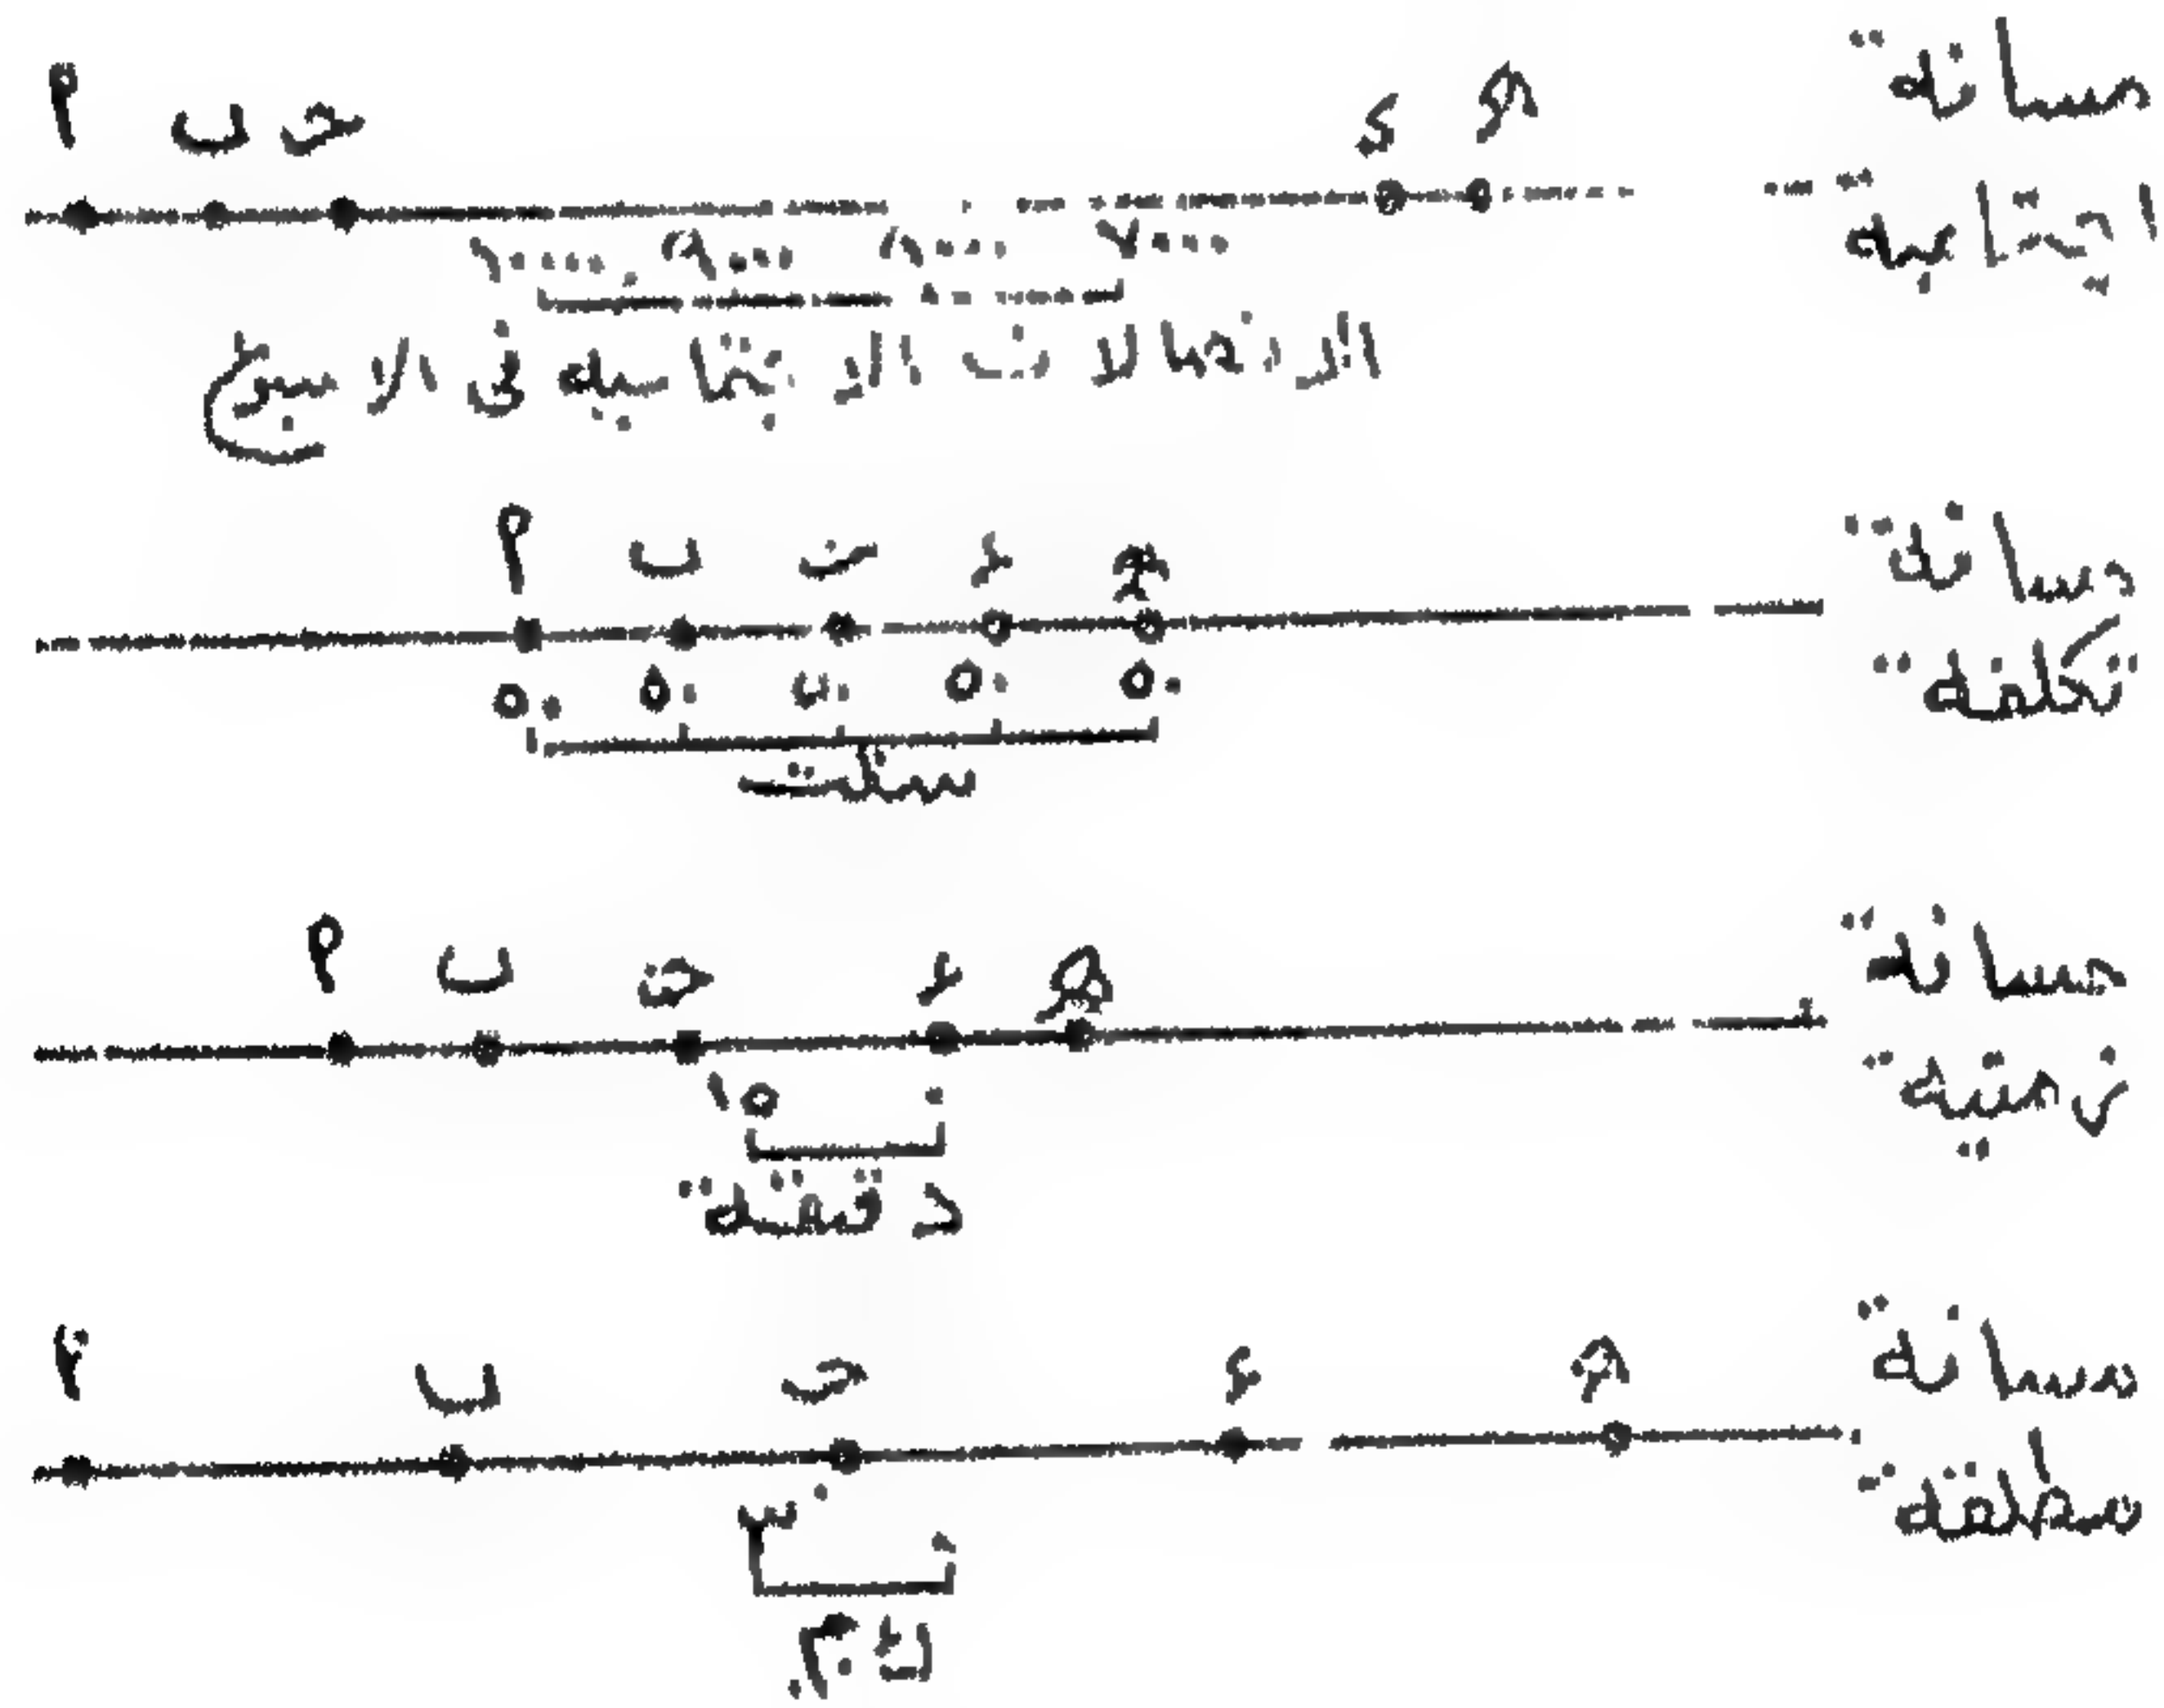 مسافة
اجتماعية
هـ د جـ ب أ
٧٠٠٠ ٨٠٠٠ ٩٠٠٠ ١٠٠٠٠
الاتصالات الاجتماعية فى الاسبوع
مسافة
تكلفة
هـ د جـ ب أ
٥٠ ٥٠ ٥٠ ٥٠ ٥٠
سنت
مسافة
زمنية
هـ د جـ ب أ
٠ ١٥
دقيقة
مسافة
مطلقة
هـ د جـ ب أ
٠ ٣٠
ك.م.